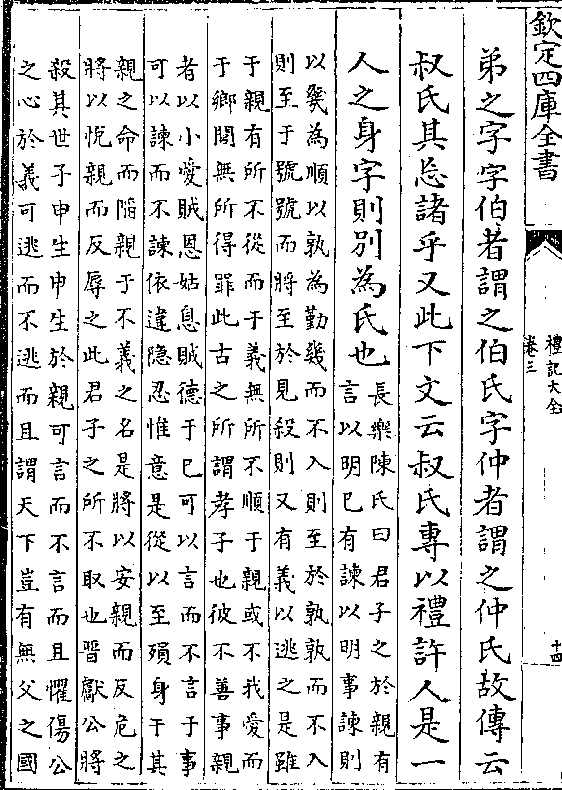 欽定四庫全書
禮記大全
卷三
十四
弟之字字伯者謂之伯氏字仲者謂之仲氏故傳云
叔氏其忘諸乎又此下文云叔氏專以禮許人是一
人之身字則別為氏也
長樂陳氏曰君子之於親有
言以明已有諫以明事諫則
以幾為順以孰為勤幾而不入則至於孰孰而不入
則至于號號而將至於見殺則又有義以逃之是雖
于親有所不從而于義無所不順于親或不我愛而
于鄉閭無所得罪此古之所謂孝子也彼不善事親
者以小愛賊恩姑息賊德于已可以言而不言于事
可以諫而不諫依違隐忍惟意是從以至殞身于其
親之命而陷親于不義之名是將以安親而反危之
將以悅親而反辱之此君子之所不取也晉獻公將
殺其世子申生申生於親可言而不言而且懼傷公
之心於義可逃而不逃而且謂天下豈有無父之國